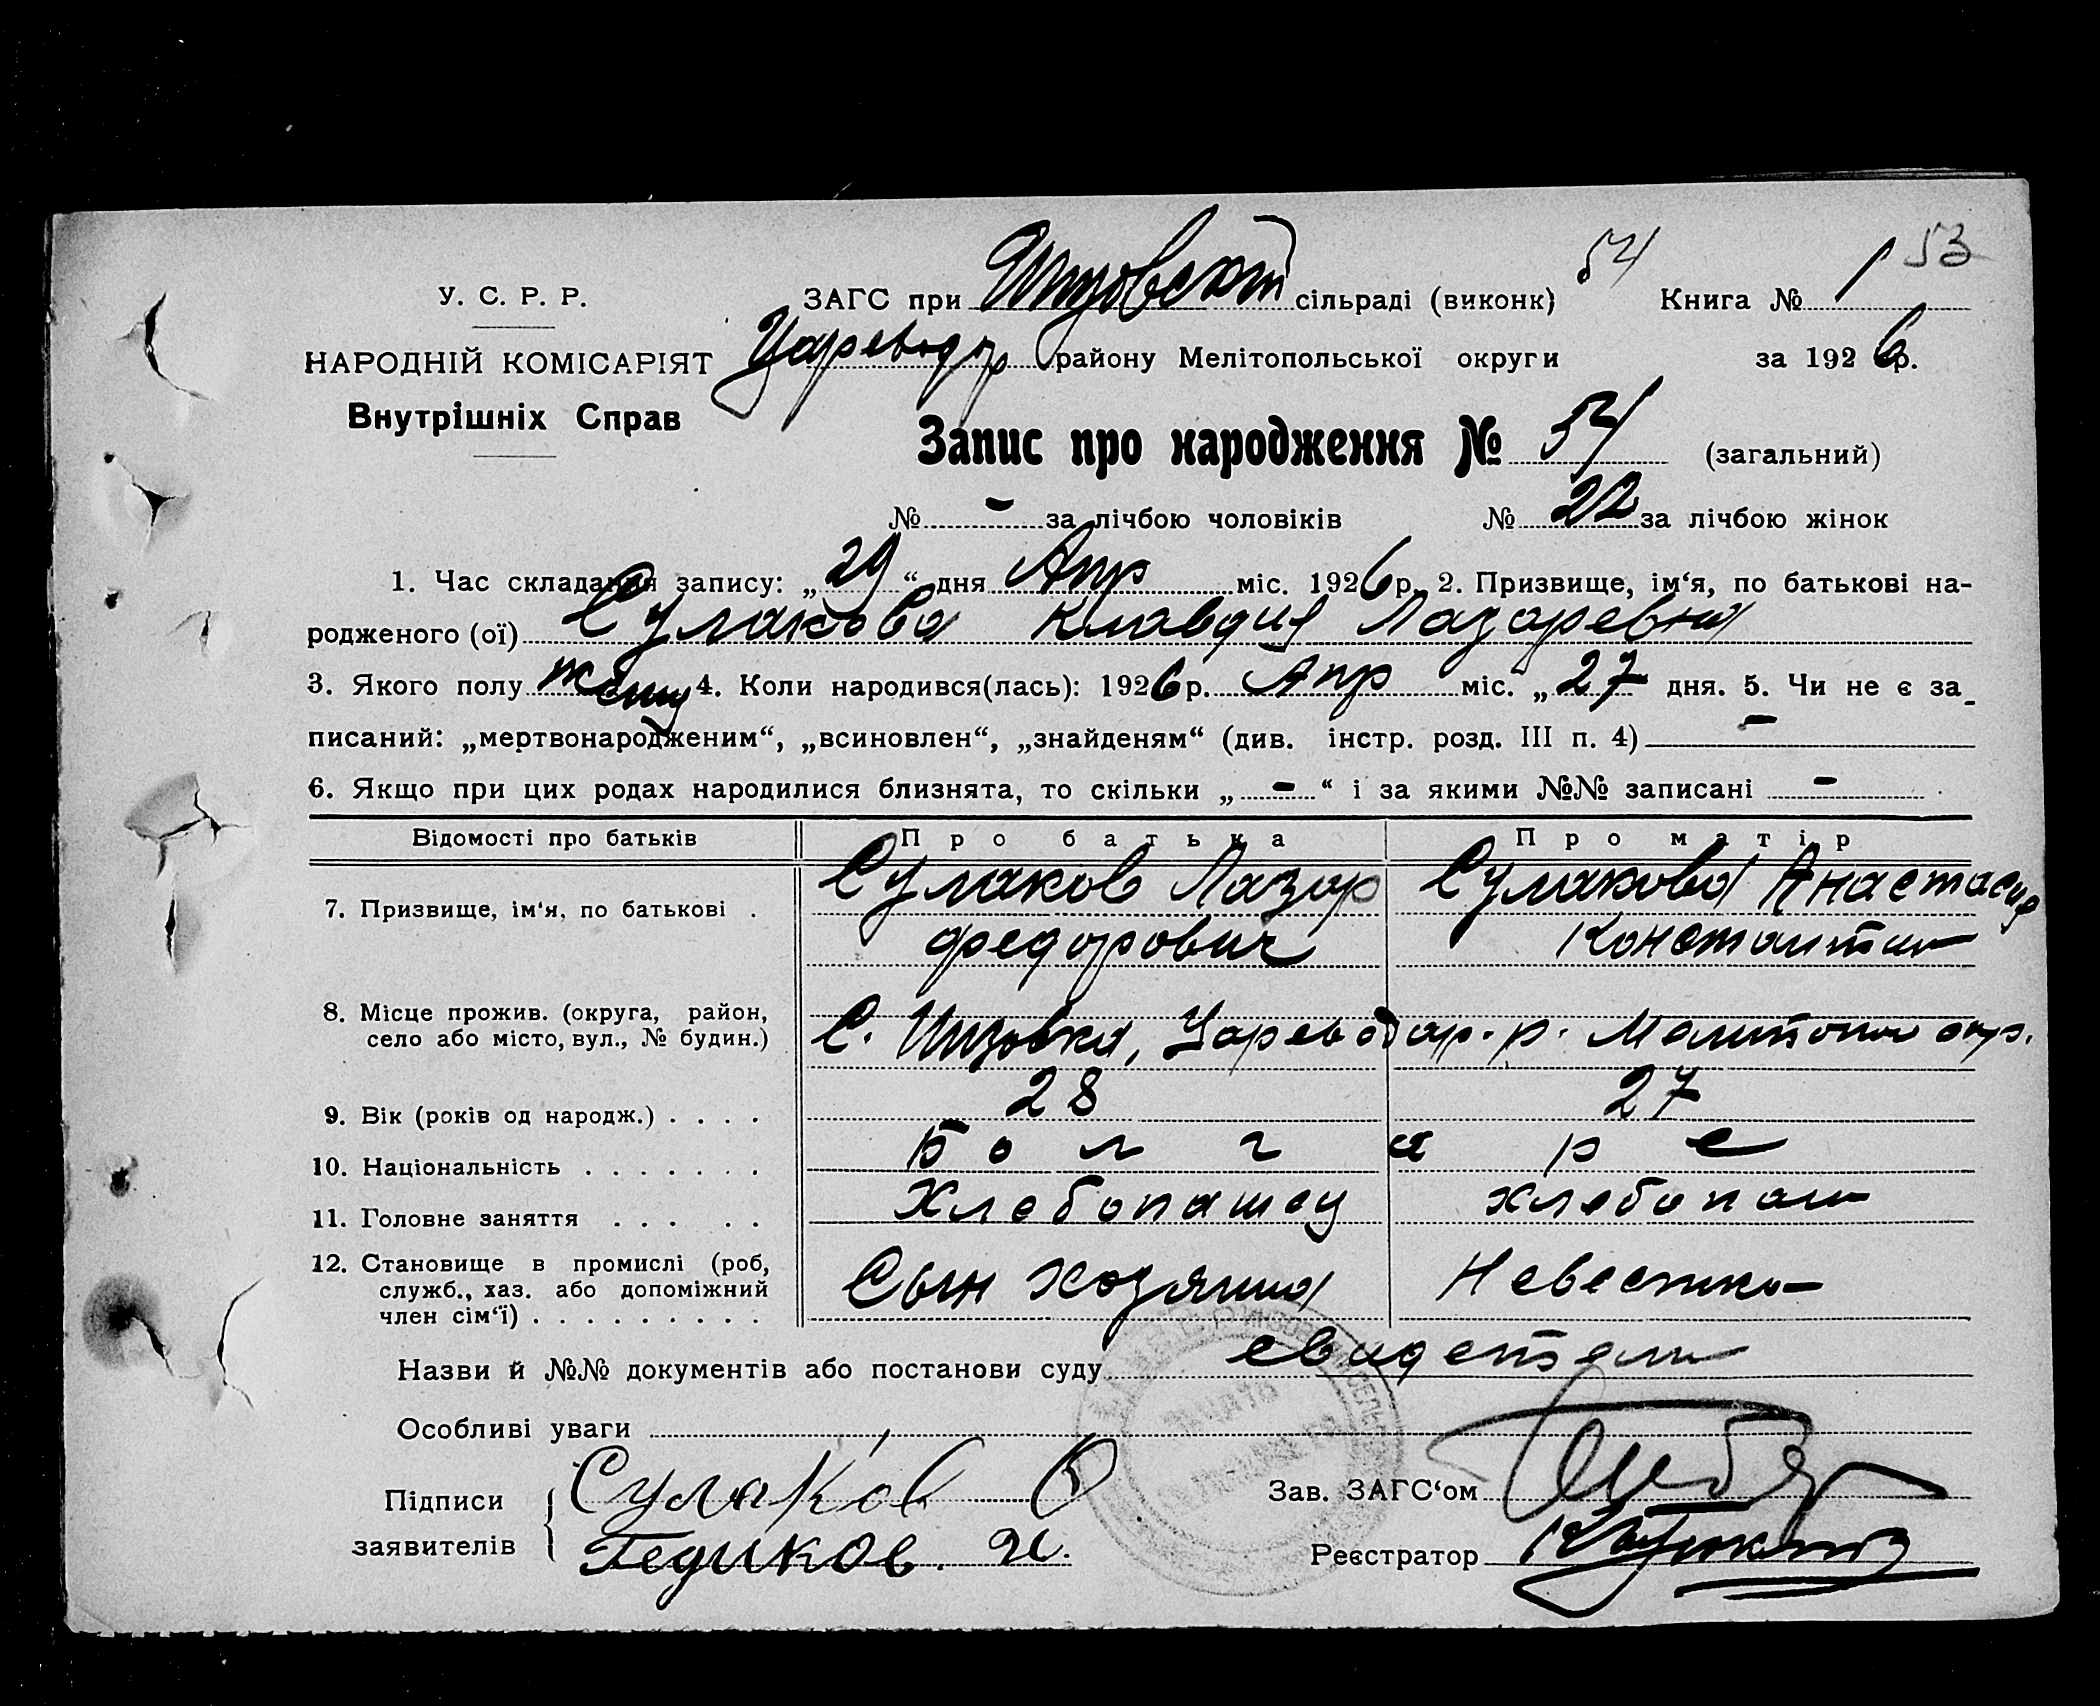 54
53
У. С. Р. Р.
ЗАГС при Инзовской сільраді (виконк)
Книга № 1
НАРОДНІЙ КОМІСАРІЯТ
Цареводар району Мелітопольської округи
за 1926 р.
Внутрішніх Справ
Запис про народження № 54 (загальний)
№ - за лічбою чоловіків № 22 за лічбою жінок
1. Час складання запису: „29“ дня Апр міс. 1926 р. 2. Призвище, ім‘я, по батькові на-
родженого (ої) Сулакова Клавдия Лазаревна
3. Якого полу женщ 4. Коли народився(лась): 1926 р. Апр міс. „27 дня. 5. Чи не є за-
писаний: „мертвонародженим“, „всиновлен“, „знайденям“ (див. інстр. розд. III п. 4) -
6. Якщо при цих родах народилися близнята, то скільки „ - “ і за якими №№ записані -
Відомості про батьків Про батька Про матір
7. Призвище, ім‘я, по батькові . Сулаков Лазар Сулакова Анастасия
федорович Констаитин
8. Місце прожив. (округа, район,
село або місто, вул., № будин.) С. Инзовка, Цареводар. р. Мелитопол окр.
9. Вік (років од народж.) . . . . 28 27
10. Національність . . . . . . . Болгаре
11. Головне заняття . . . . . Хлебопашец хлебопаш
12. Становище в промислі (роб,
служб., хаз. або допоміжний Сын хозяина Невестка
член сім‘ї) . . . . . . . . .
Назви й №№ документів або постанови суду свидетели
Особливі уваги
Підписи Сулаков
Зав. ЗАГС‘ом
заявителів Гедиков. И.
Реєстратор